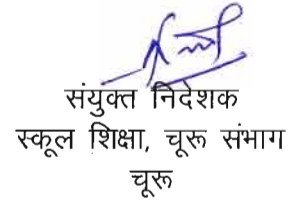 संयुक्त निदेशक
स्कूल शिक्षा, चूरू संभाग
चूरू